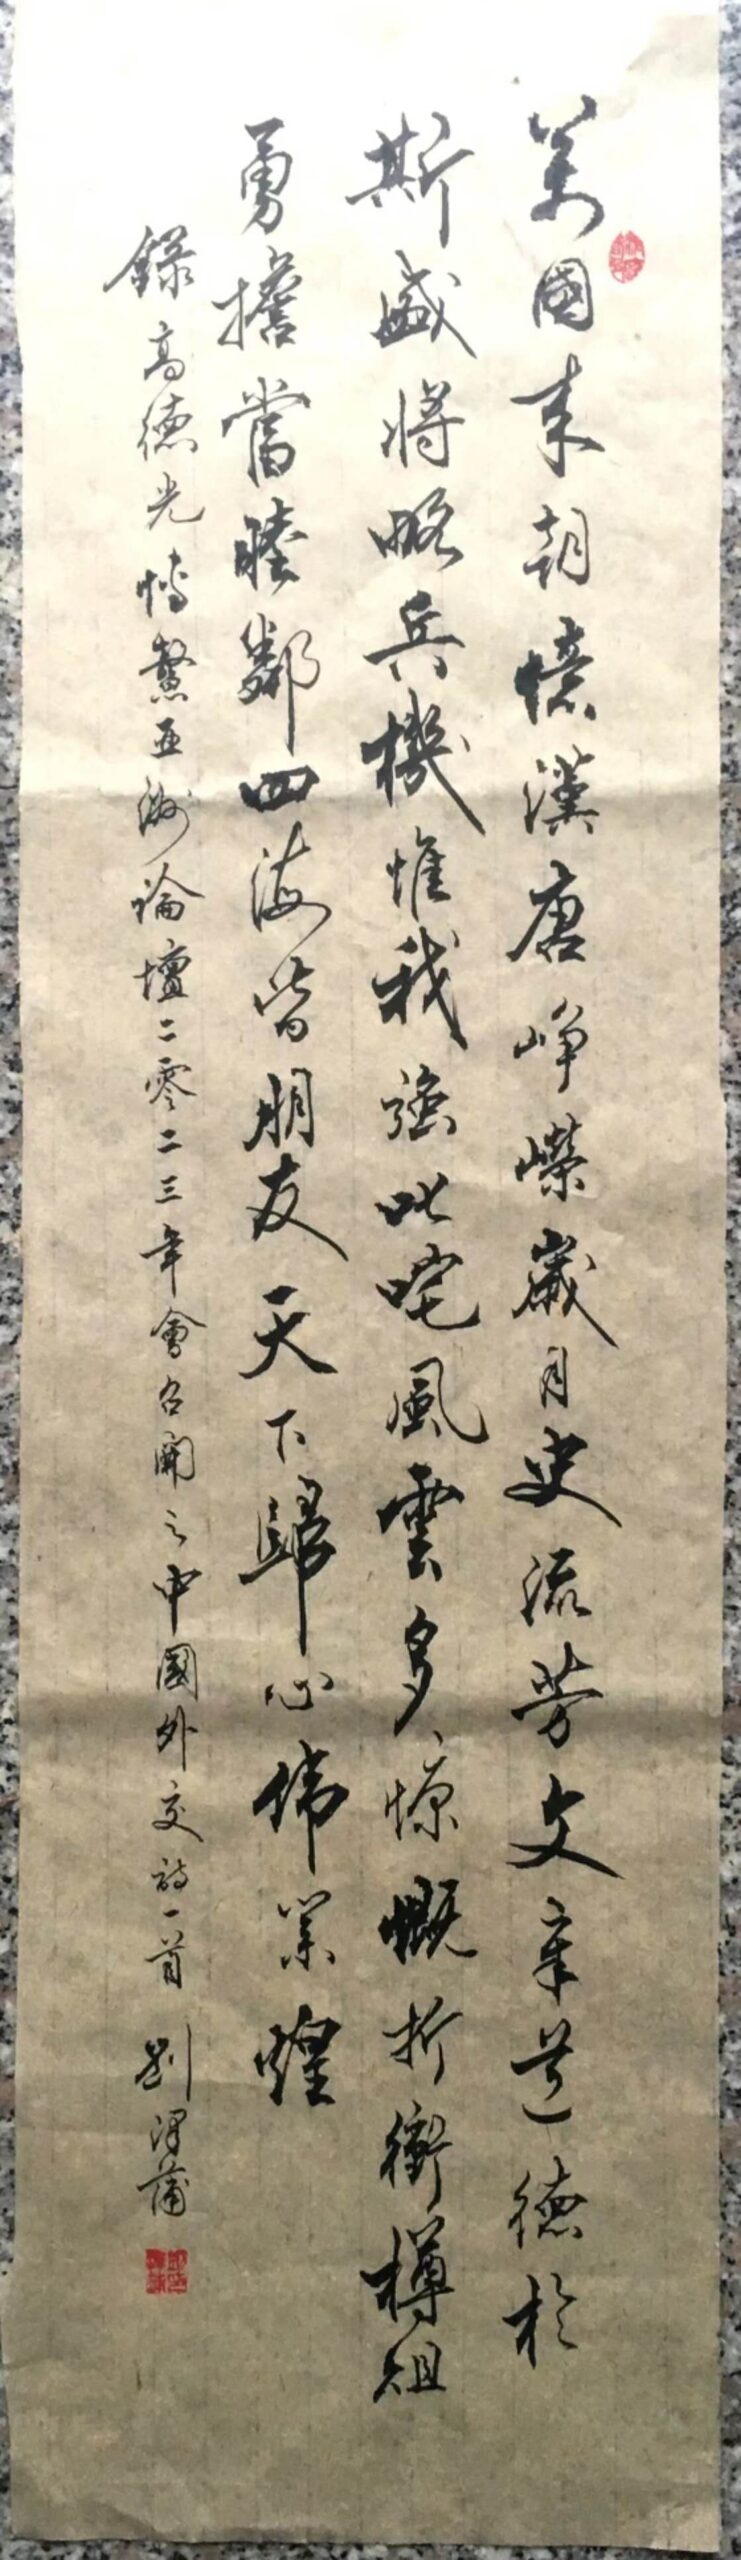 萬國來朝憶漢唐崢嶸歲月史流芳文章道德於
斯盛將略兵機惟我強叱咤風雲多慷慨折衝樽俎
勇擔當睦鄰四海皆朋友天下歸心偉業煌
錄高德光博鰲亞洲論壇二零二三年會召開之中國外交詩一首 劉澤蒲